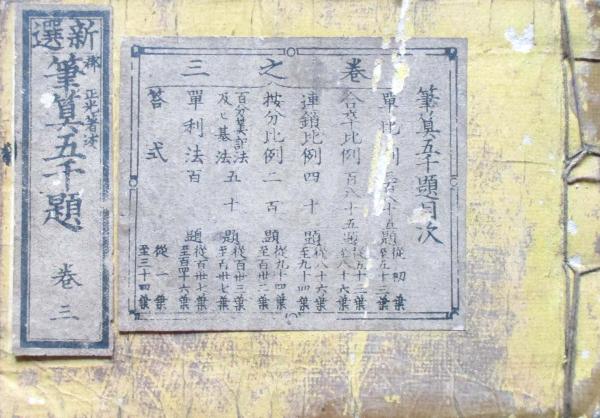 卷之三
筆算五千題目次
單比例 八十五題 從初葉
至五十三葉
比例 百八十五題 從五十三葉
至八十六葉
連鎖比例四十題 從八十六葉
至九十四葉
按分比例二百題 從九十四葉
至百廿二葉
百分算
及ヒ基法 五十題 從百廿三葉
至百廿七葉
單利法百題 從百廿七葉
至百四十六葉
答式 從一葉
至三十四葉
新選
正光著述
筆算五千題
卷三